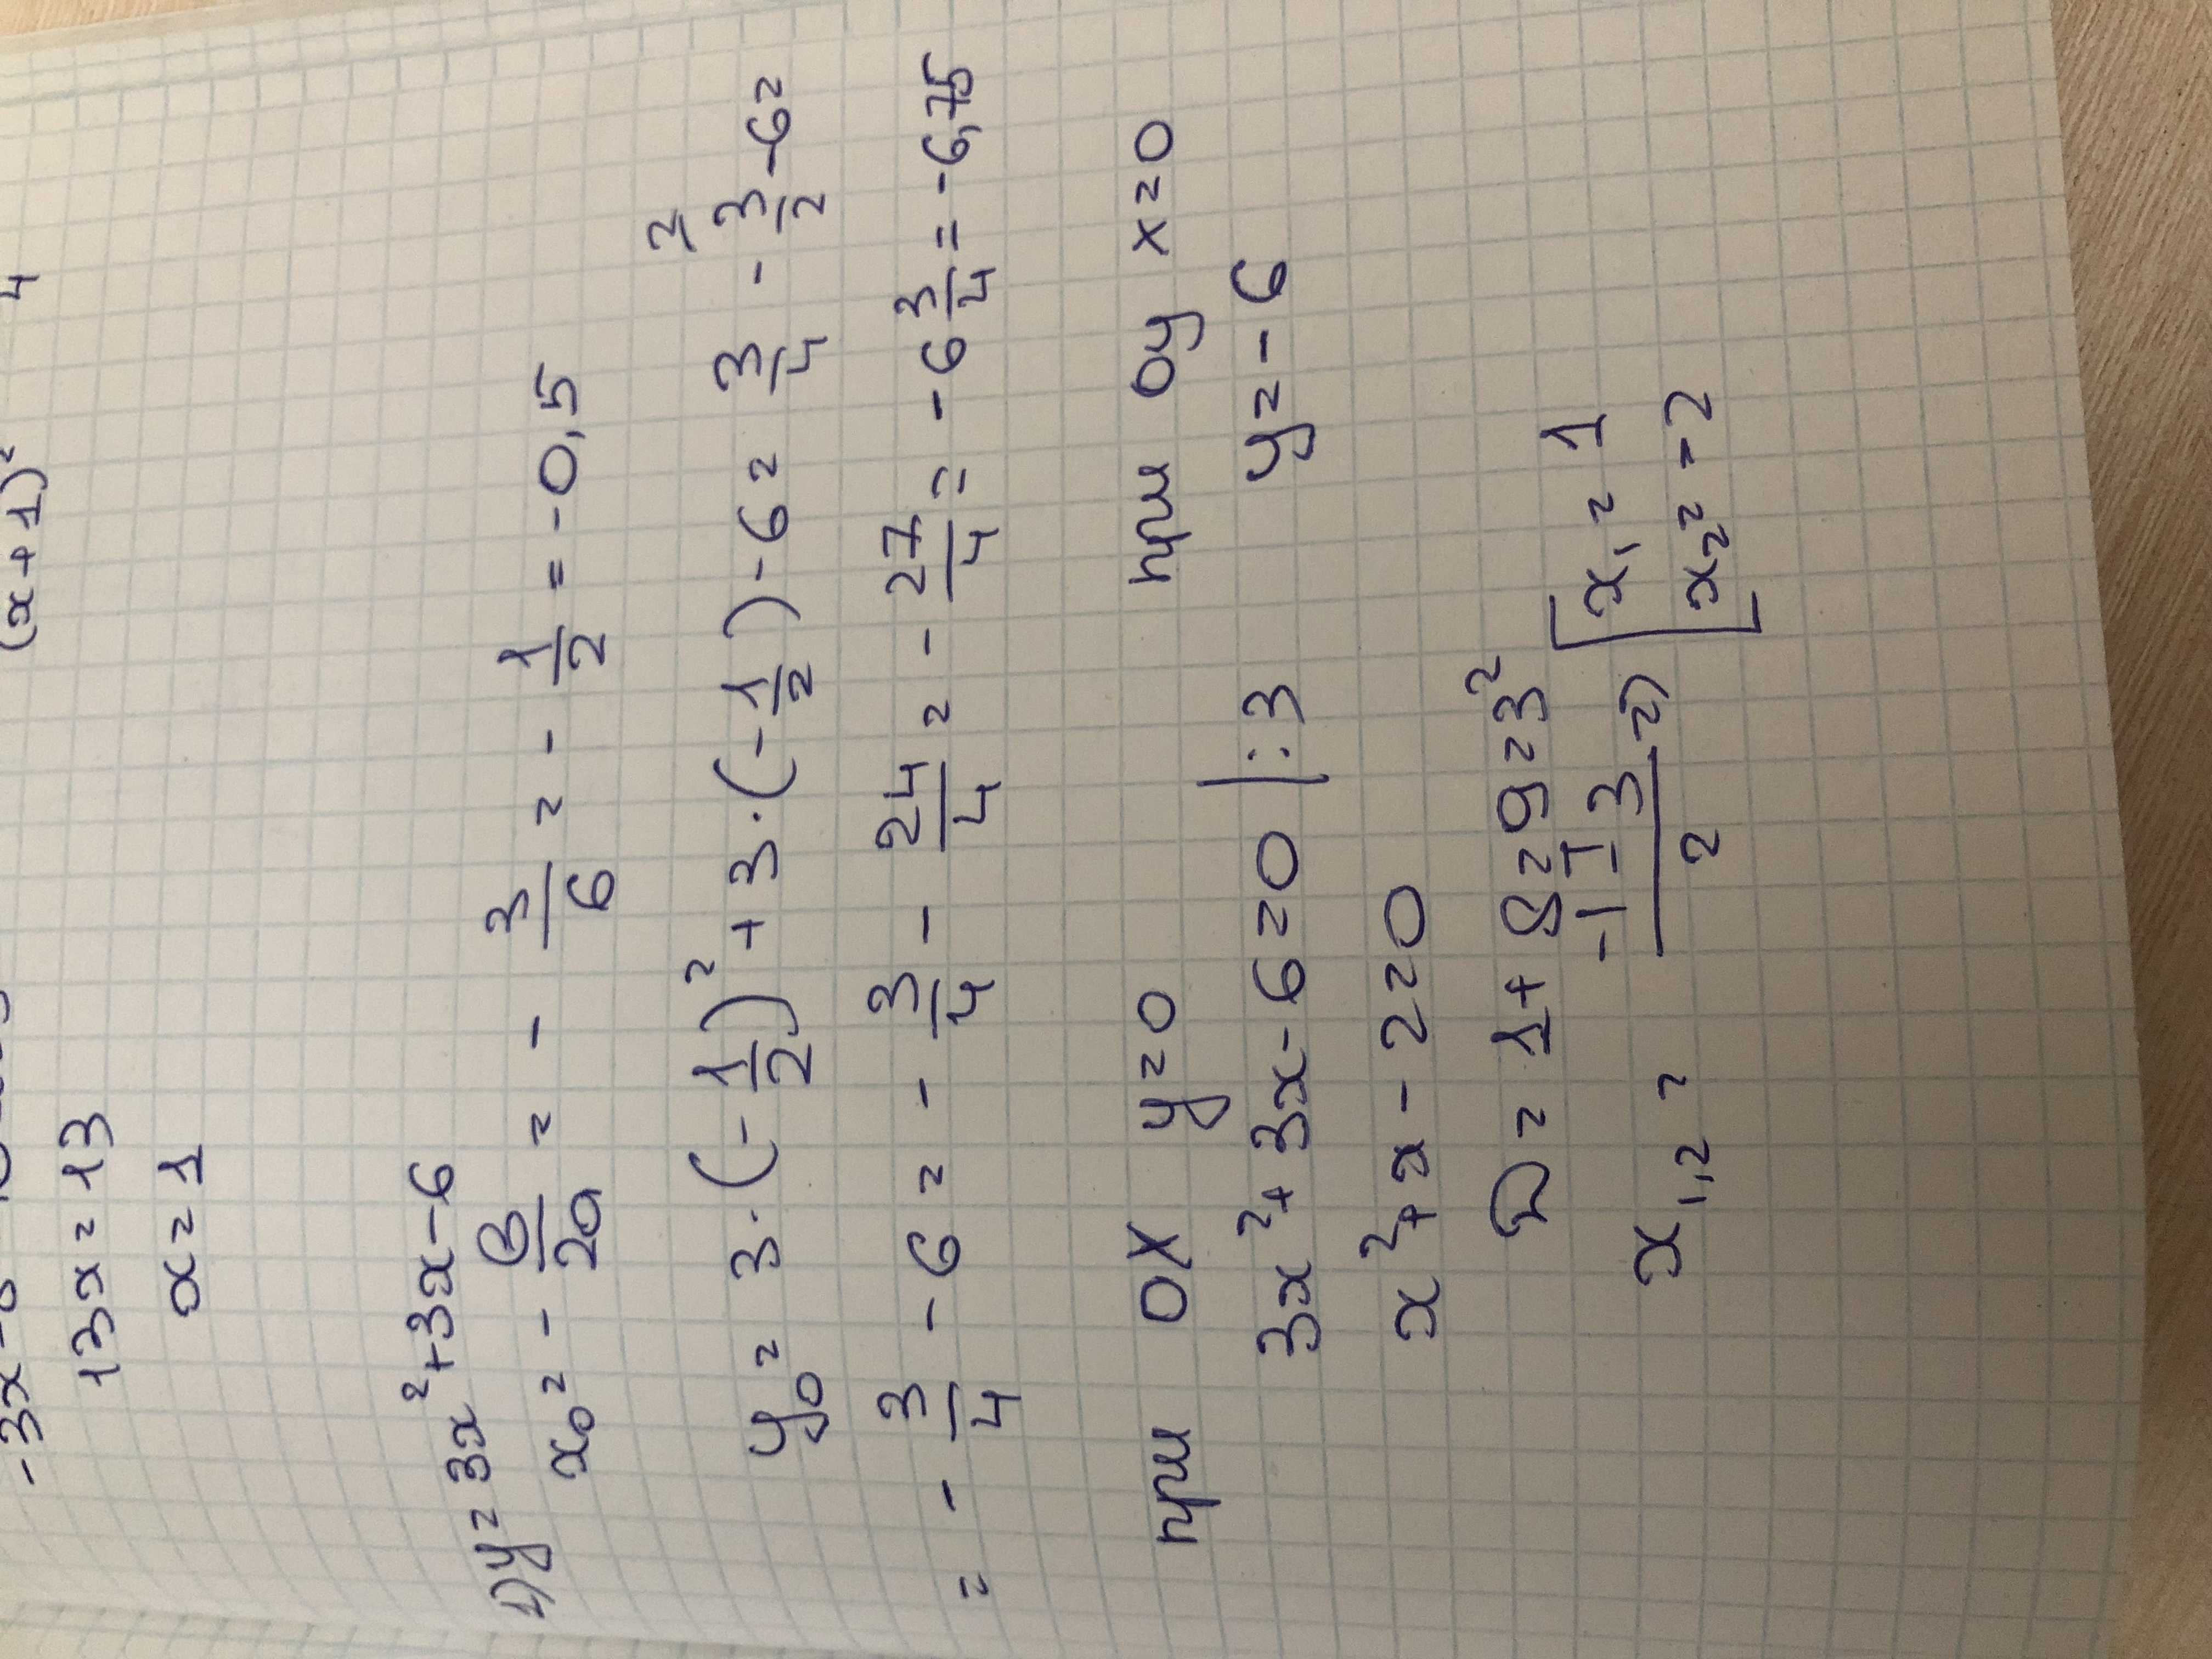 (x+1)² 4
13x=13
x=1
1) y=3x²+3x-6
x₀=-B/2a=-3/6=-1/2=-0,5
y₀=3·(-1/2)²+3·(-1/2)-6=3/4-3/2-6=
=-3/4-6=-3/4-24/4=-27/4=-6 3/4=-6,75
при OX y=0 при Oy x=0
3x²+3x-6=0 |:3 y=-6
x²+x-2=0
D=1+8=9=3²
x₁,₂=(-1±3)/2 => [x₁=1
x₂=-2